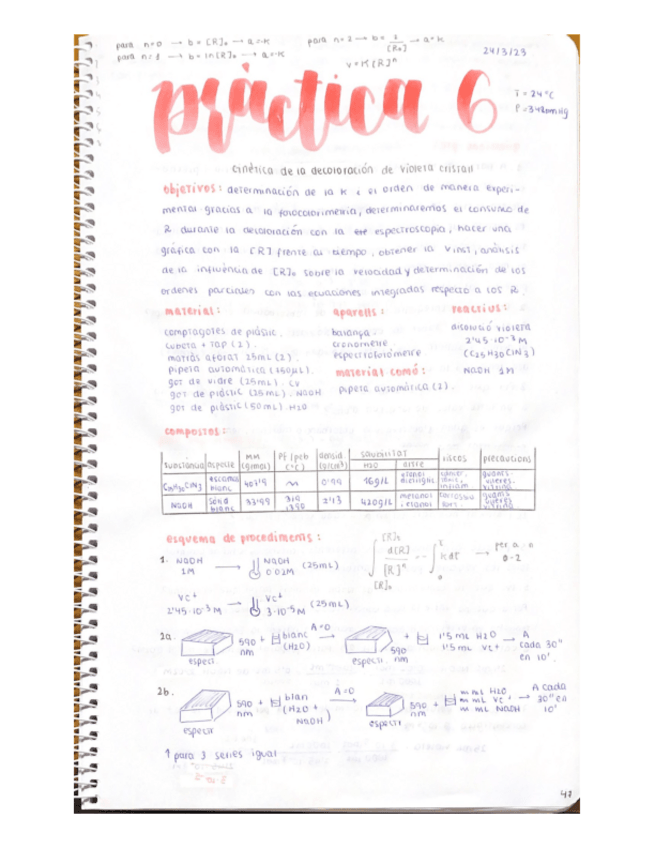 para n=0 → b = [R]₀ → a=-K
para n=2 → b = 1/[R₀] → a=K
24/3/23
para n=1 → b = ln[R]₀ → a=-K
v=K[R]ⁿ
pràctica 6
T = 24ºC
cinética de la decoloración de violeta cristall
objetivos: determinación de la K i el orden de manera experi-
mental gracias a la fotocolorimetría, determinaremos el consumo de
R durante la decoloración con la espectroscopia, hacer una
gráfica con la [R] frente al tiempo, obtener la Vinst, análisis
de la influencia de [R]₀ sobre la velocidad y determinación de los
ordenes parciales con las ecuaciones integradas respecto a los R.
material: aparells: reactius:
comptagotes de plàstic. balança. disolució violeta
cubeta + tap (2). cronometre 2'45·10⁻³ M
matràs aforat 25mL (2). espectrofotòmetre (C25H30ClN3)
pipeta automática (150µL). material comú: NaOH 1M
got de vidre (25mL). CV pipeta automática (2).
got de plàstic (25mL). NaOH
got de plàstic (50mL) H2O
compostos:
substància aspecte MM (g/mol) Pf/peb (ºC) densid (g/cm³) solubilitat H2O altre riscos precaucions
C25H30ClN3 407'9 0'99 16g/L
NaOH sòlid blanc 2'13 420g/L metanol, etanol
esquema de procediments:
1. NaOH 1M → NaOH 0.02M (25mL)
[R]₀ d[R] [R]ⁿ kdt → per a
VC⁺ 2'45·10⁻³ M → VC⁺ 3·10⁻⁵ M (25mL)
2a. especi. 590 nm + blanc (H2O) A=0 → especi. 590 nm + 1'5 mL H2O 1'5 mL VC⁺ → A cada 30" en 10'.
2b. especi 590 nm + blan (H2O + NaOH) A=0 → especi 590 nm + m mL H2O m mL VC⁺ m mL NaOH → A cada 30" en 10'
para 3 series igual